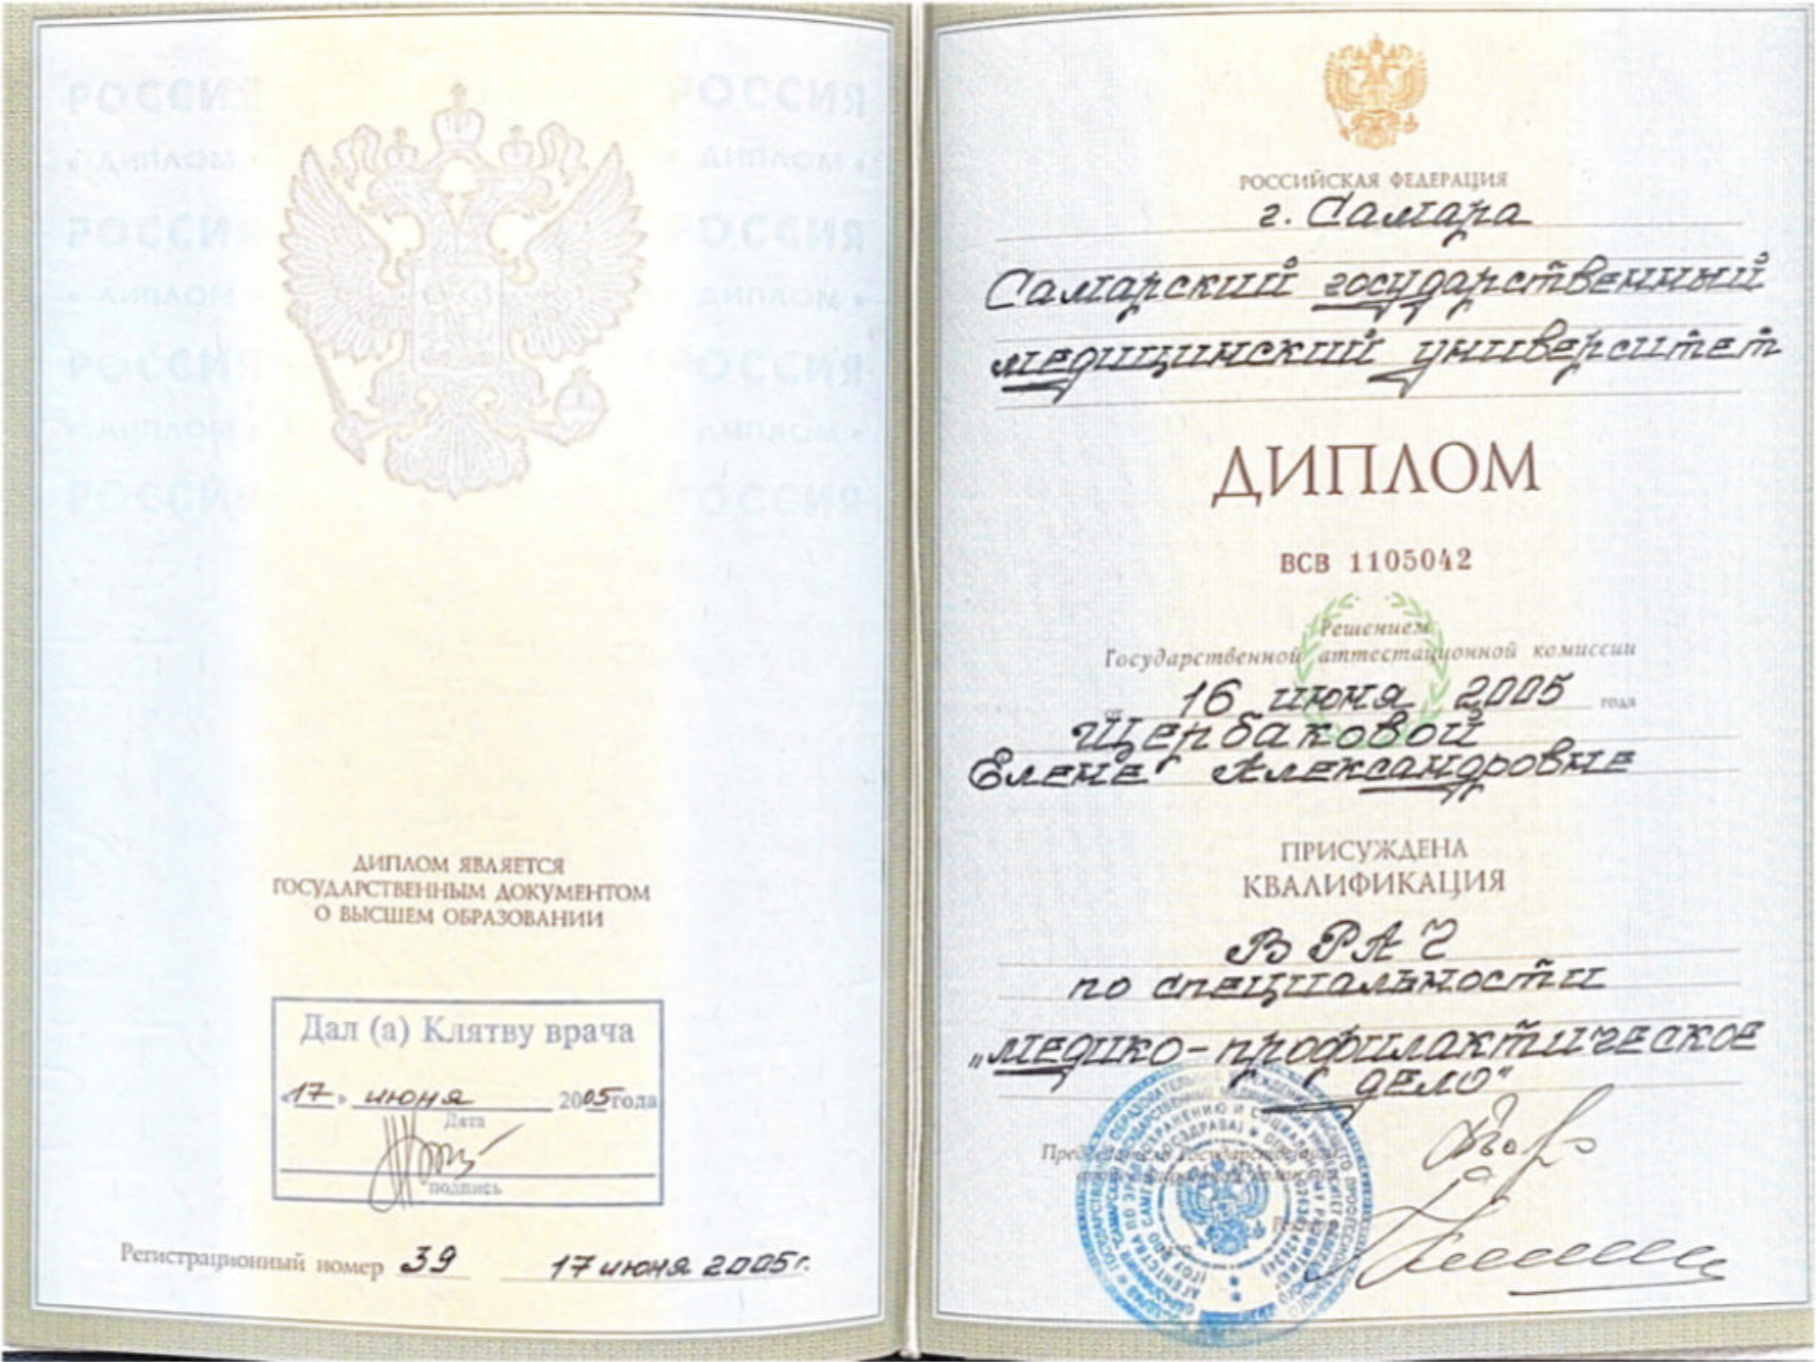 РОССИЯ РОССИЯ
• ДИПЛОМ • • ДИПЛОМ •
РОССИЯ РОССИЯ
• ДИПЛОМ • • ДИПЛОМ •
РОССИЯ РОССИЯ
• ДИПЛОМ • • ДИПЛОМ •
РОССИЯ РОССИЯ
ДИПЛОМ ЯВЛЯЕТСЯ
ГОСУДАРСТВЕННЫМ ДОКУМЕНТОМ
О ВЫСШЕМ ОБРАЗОВАНИИ
Дал (а) Клятву врача
«17» июня 2005 года
Дата
подпись
Регистрационный номер 39 17 июня 2005 г.
РОССИЙСКАЯ ФЕДЕРАЦИЯ
г. Самара
Самарский государственный
медицинский университет
ДИПЛОМ
ВСВ 1105042
Решением
Государственной аттестационной комиссии
от 16 июня 2005 года
Щербаковой
Елене Александровне
ПРИСУЖДЕНА
КВАЛИФИКАЦИЯ
ВРАЧ
по специальности
„медико-профилактическое
дело"
Председатель Государственной